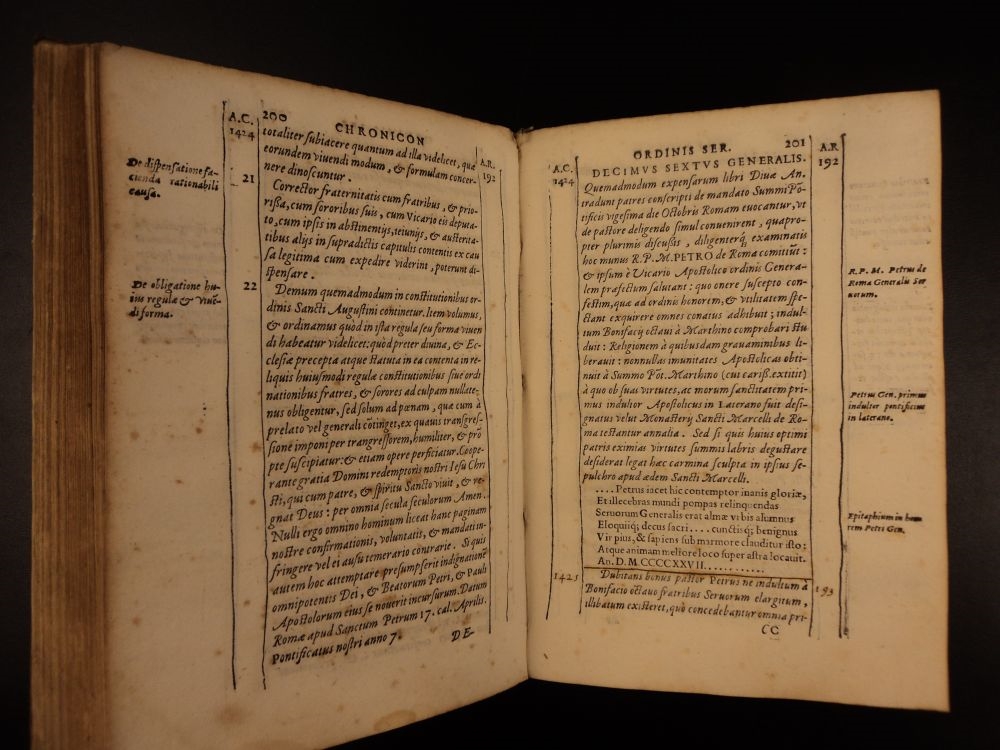 A.C.
1424
200
CHRONICON
A.R.
192
De dispensatione fa-
cienda rationabili
causa.
De obligatione hu-
ius regulæ & viuē-
di forma.
totaliter subiacere quantum ad illa videlicet, quæ
eorundem viuendi modum, & formulam concer-
nere dinoscuntur.
21
Corrector fraternitatis cum fratribus, & prio-
rissa, cum sororibus suis, cum Vicario eis deputa-
to, cum ipsis in abstinentijs, ieiunijs, & austerita-
tibus alijs in supradictis capitulis contentis ex cau
sa legitima cum expedire viderint, poterunt di-
spensare.
22
Demum quemadmodum in constitutionibus or-
dinis Sancti Augustini continetur. Item volumus,
& ordinamus quòd in ista regula seu forma viuen
di habeatur videlicet: quòd preter diuina, & Ec-
clesiæ precepta atque statuta in ea contenta in re-
liquis huiusmodi regulæ constitutionibus siue ordi
nationibus fratres, & sorores ad culpam nullate-
nus obligentur, sed solum ad pœnam, quæ cum à
prelato vel generali cōtinget, ex quauis transgres-
sione imponi per trangressorem, humiliter, & prō
pte suscipiatur: & etiam opere perficiatur. Coope-
rante gratia Domini redemptoris nostri Iesu Chri
sti, qui cum patre, & spiritu Sancto viuit, & re-
gnat Deus: per omnia secula seculorum Amen.
Nulli ergo omnino hominum liceat hanc paginam
nostre confirmationis, voluntatis, & mandati in-
fringere vel ei ausu temerario contrarie. Si quis
autem hoc attemptare presumpserit indignationē
omnipotentis Dei, & Beatorum Petri, & Pauli
Apostolorum eius se nouerit incursurum. Datum
Romæ apud Sanctum Petrum 17. cal. Aprilis.
Pontificatus nostri anno 7.
DE-
A.C.
1424
ORDINIS SER.
201
A.R
192
DECIMVS SEXTVS GENERALIS.
Quemadmodum expensarum libri Diuæ An.
tradunt patres conscripti de mandato Summi Pō-
tificis vigesima die Octobris Romam euocantur, vt
de pastore deligendo simul conuenirent, quapro-
pter plurimis discussis, diligenterq; examinatis
hoc munus R. P. M. PETRO de Roma comitiūt:
& ipsum è Vicario Apostolico ordinis Genera-
lem præfectum salutant: quo onere suscepto con-
festim, quæ ad ordinis honorem, & vtilitatem spe-
ctant exquirere omnes conatus adhibuit; indul-
tum Bonifacij octaui à Marthino comprobari stu
duit: Religionem à quibusdam grauaminibus li-
berauit: nonnullas imunitates Apostolicas obti-
nuit à Summo Pōt. Marthino (cui cariss. extitit)
à quo ob suas virtutes, ac morum sanctitatem pri-
mus indultor Apostolicus in Laterano fuit desi-
gnatus velut Monasterij Sancti Marcelli de Ro-
ma testantur annalia. Sed si quis huius optimi
patris eximias virtutes summis labris degustare
desiderat legat hæc carmina sculpta in ipsius se-
pulchro apud ædem Sancti Marcelli.
.... Petrus iacet hic contemptor inanis gloriæ,
Et illecebras mundi pompas relinquendas
Seruorum Generalis erat almæ vrbis alumnus
Eloquiiq; decus sacri .... cunctisq; benignus
Vir pius, & sapiens sub marmore clauditur isto:
Atque animam meliore loco super astra locauit.
An. D. M CCCCXXVII............
1425
Dubitans bonus pastor Petrus ne indultum à
Bonifacio octauo fratribus Seruorum elargitum,
illibatum existeret, quò concedebantur omnia pri-
193
CC
R. P. M. Petrus de
Roma Generalis Ser
uorum.
Petrus Gen. primus
indultor pontificius
in laterano.
Epitaphium in hono
rem Petri Gen.